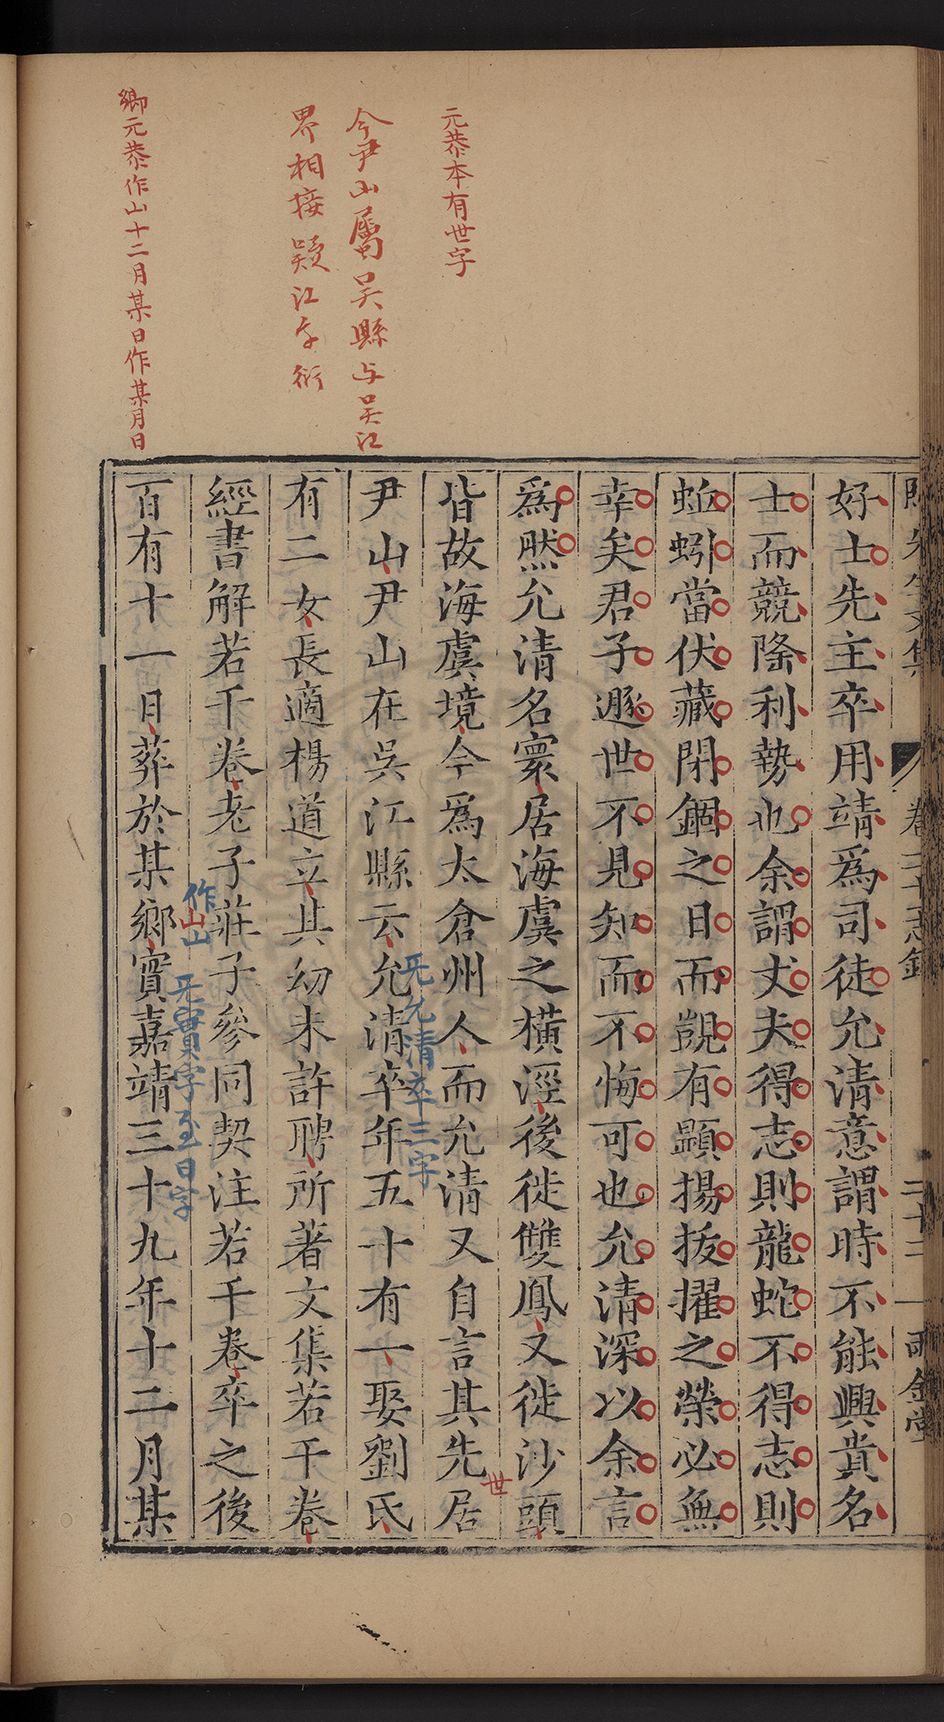 元恭本有世字
今尹山屬吳縣与吳江
界相接疑江字衍
鄉元恭作山十二月某日作某月日
好士先主卒用靖爲司徒允清意謂時不能興貴名
士而競隆利勢也余謂丈夫得志則龍蛇不得志則
蚯蚓當伏藏閉錮之日而覬有顯揚拔擢之榮必無
幸矣君子遯世不見知而不悔可也允清深以余言
爲然允清名寰居海虞之橫涇後徙雙鳳又徙沙頭
皆故海虞境今爲太倉州人而允清又自言其先居
世
尹山尹山在吳江縣云允清卒年五十有一娶劉氏
无允清卒三字
有二女長適楊道立其幼未許聘所著文集若干卷
經書解若干卷老子莊子參同契注若干卷卒之後
百有十一日葬於某鄉實嘉靖三十九年十二月某
作山
无實字至日字